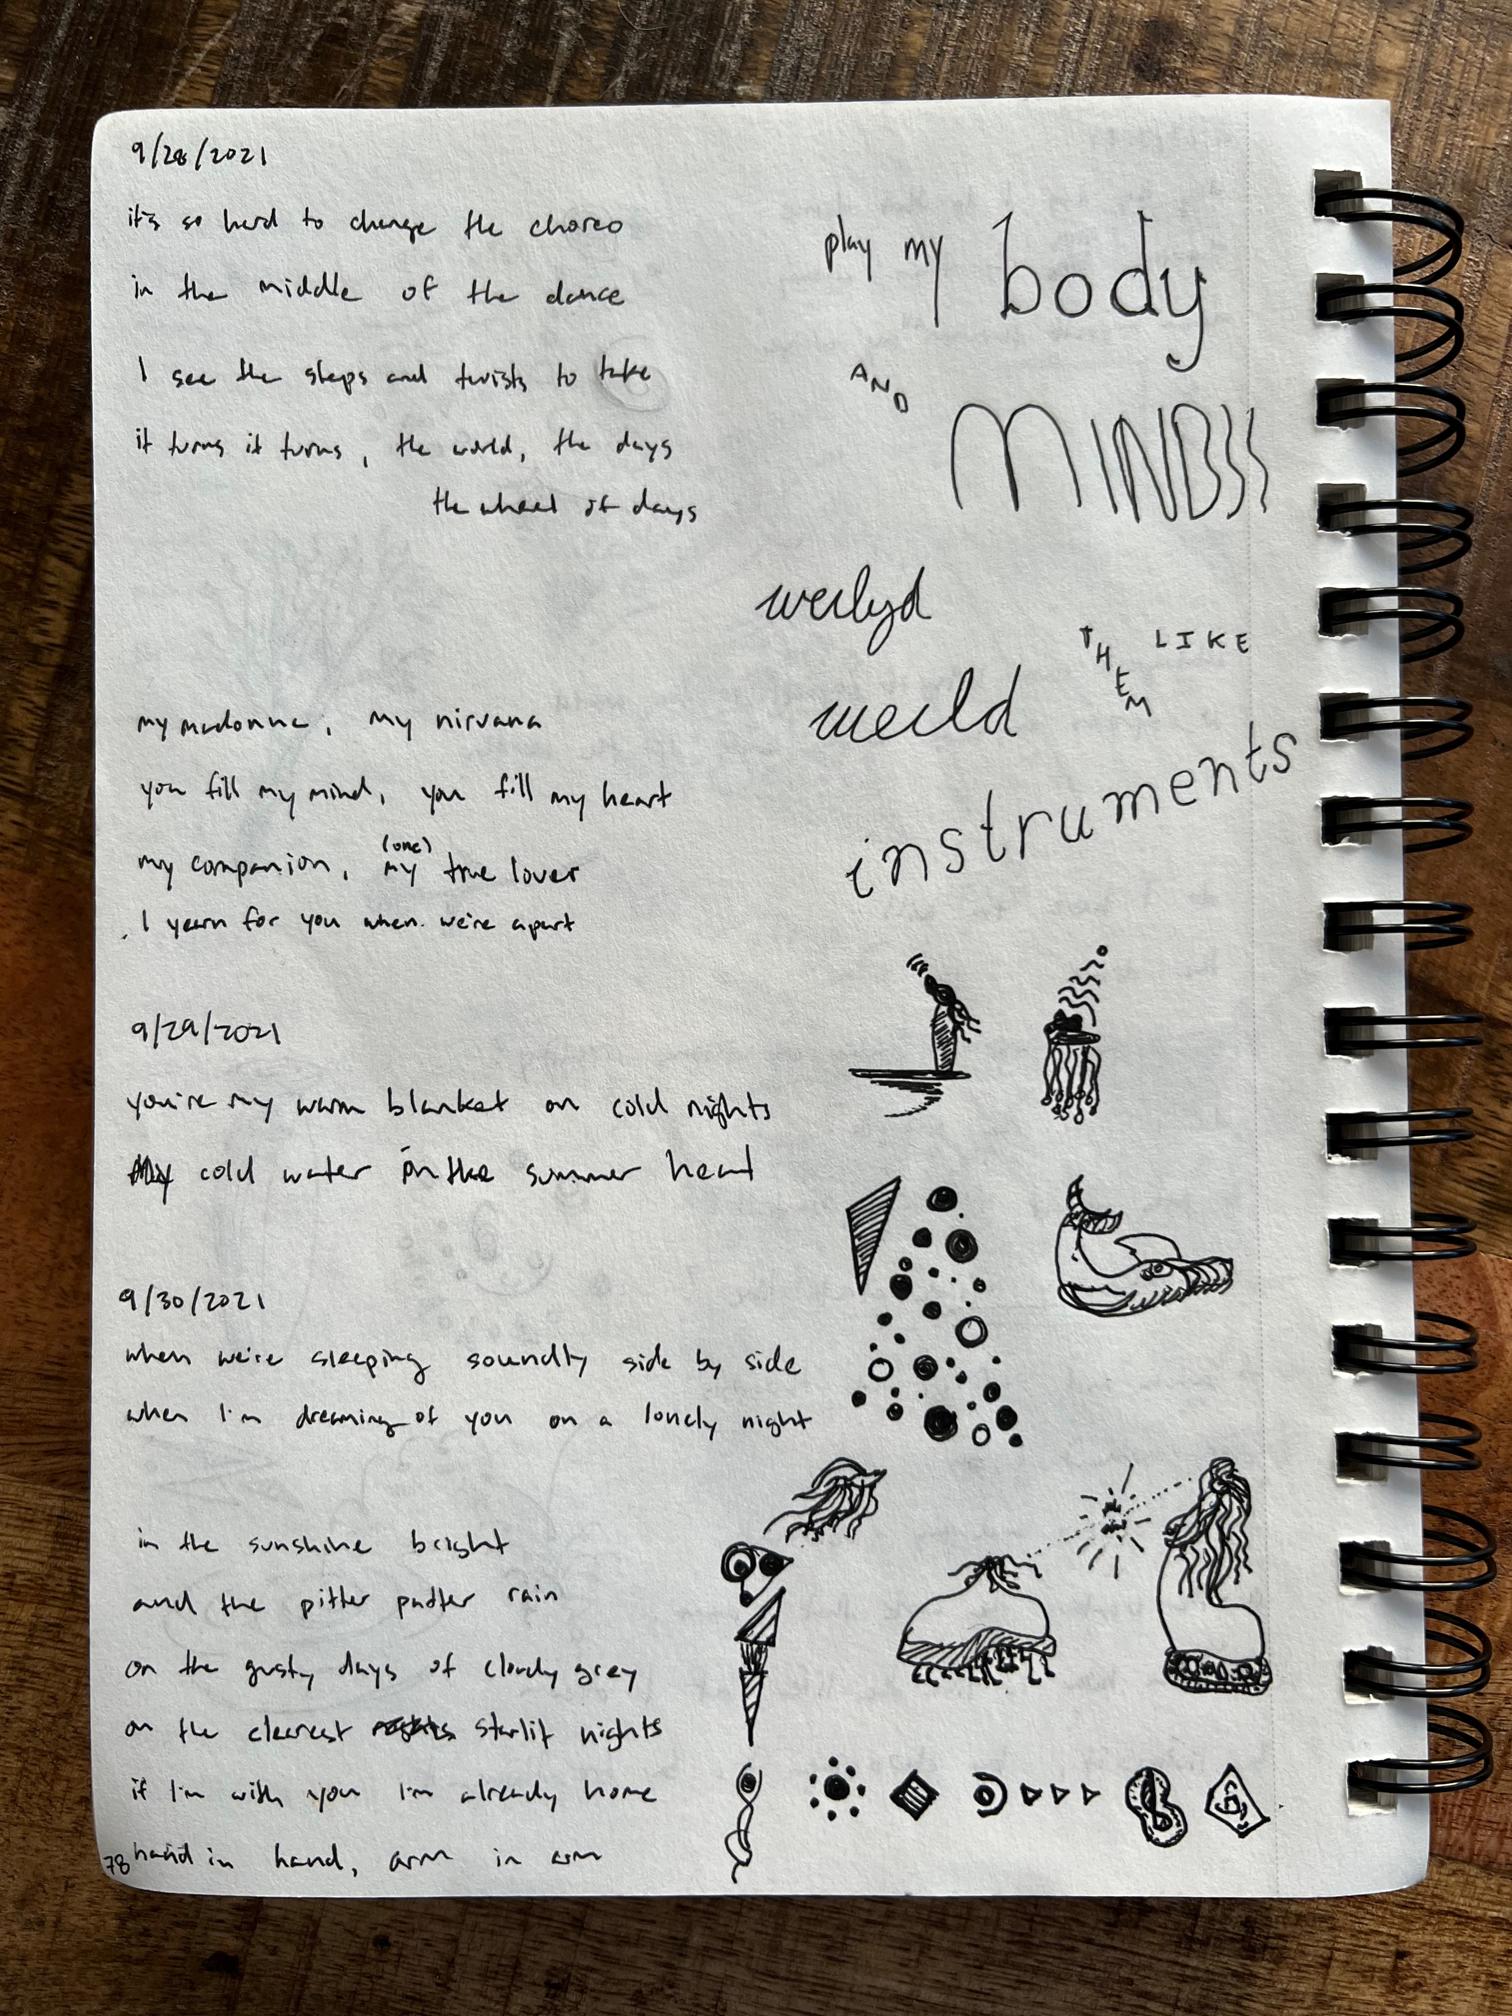 9/28/2021
it's so hard to change the choreo
in the middle of the dance
I see the steps and twists to take
it turns it turns, the world, the days
the wheel of days
my madonna, my nirvana
you fill my mind, you fill my heart
(one)
my companion, my true lover
I yearn for you when we're apart
9/29/2021
you're my warm blanket on cold nights
My cold water in the summer heat
9/30/2021
when we're sleeping soundly side by side
when I'm dreaming of you on a lonely night
in the sunshine bright
and the pitter patter rain
on the gusty days of cloudy grey
on the clearest nights starlit nights
if I'm with you I'm already home
hand in hand, arm in arm
78
play my body
AND
MINDSS
weilyd
weild THEM LIKE
instruments